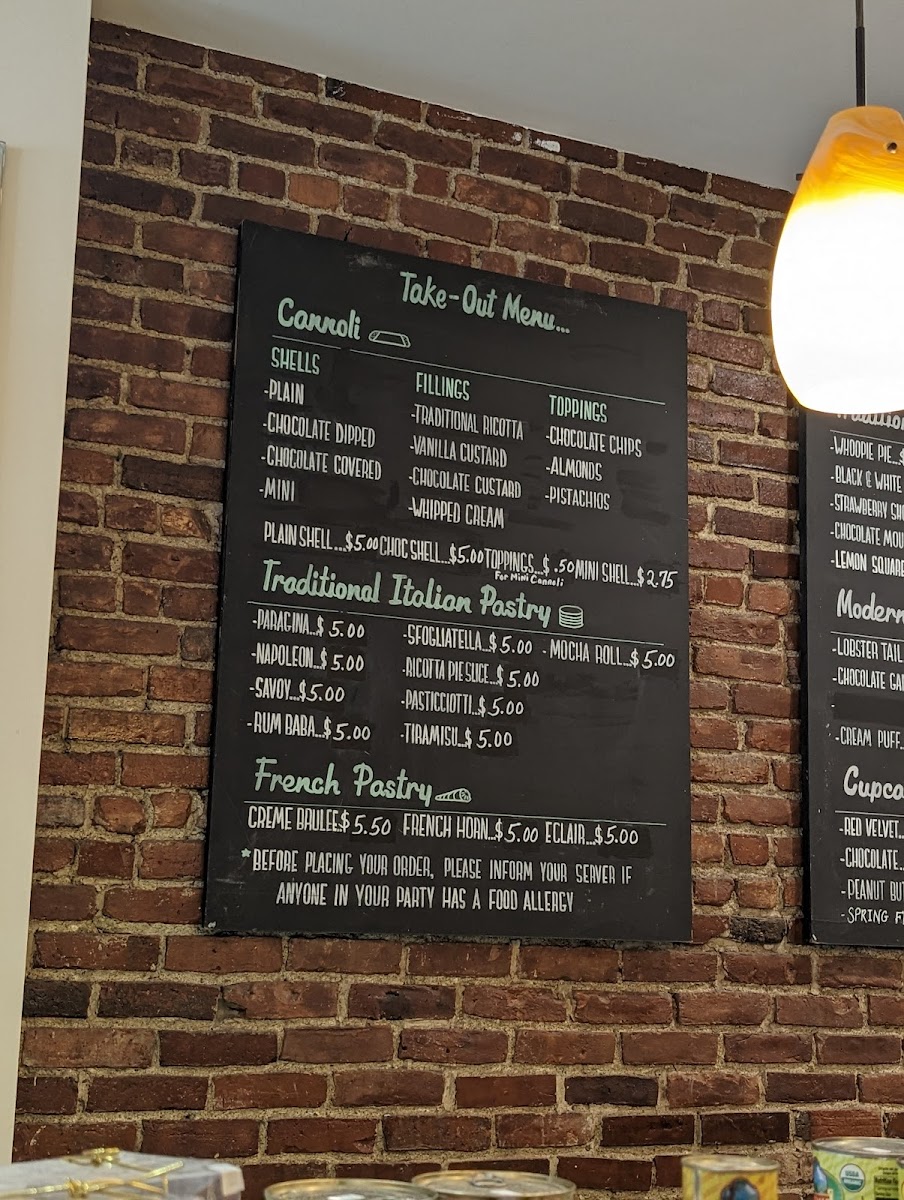 Take-Out Menu...
Cannoli
SHELLS
-PLAIN
-CHOCOLATE DIPPED
-CHOCOLATE COVERED
-MINI
FILLINGS
-TRADITIONAL RICOTTA
-VANILLA CUSTARD
-CHOCOLATE CUSTARD
-WHIPPED CREAM
TOPPINGS
-CHOCOLATE CHIPS
-ALMONDS
-PISTACHIOS
PLAIN SHELL...$5.00 CHOC SHELL...$5.00 TOPPINGS...$.50 MINI SHELL...$2.75
For Mini Cannoli
Traditional Italian Pastry
-PARAGINA...$5.00
-NAPOLEON...$5.00
-SAVOY...$5.00
-RUM BABA...$5.00
-SFOGLIATELLA...$5.00
-RICOTTA PIE SLICE...$5.00
-PASTICCIOTTI...$5.00
-TIRAMISU...$5.00
-MOCHA ROLL...$5.00
French Pastry
CREME BRULEE$5.50 FRENCH HORN...$5.00 ECLAIR...$5.00
*BEFORE PLACING YOUR ORDER, PLEASE INFORM YOUR SERVER IF
ANYONE IN YOUR PARTY HAS A FOOD ALLERGY
-WHOOPIE PIE...$
-BLACK & WHITE
-STRAWBERRY SHO
-CHOCOLATE MOU
-LEMON SQUARE
Modern
-LOBSTER TAIL
-CHOCOLATE GA
-
-CREAM PUFF..
Cupca
-RED VELVET..
-CHOCOLATE..
-PEANUT BU
-SPRING F
USDA
ORGANIC